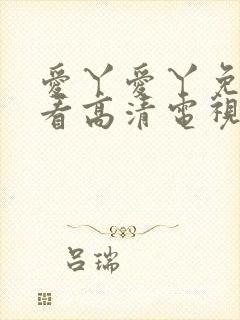 愛丫愛丫免
看高清電視
吕瑞